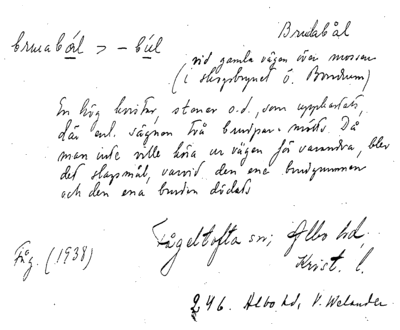 Brudabål
bruabål > - bül
vid gamla vägen över mossen
(i skogsbrynet ö. Brudum)
En hög kvistar, stenar o.d., som uppkastats,
där enl. sägnen två brudpar mötts. Då
man inte ville köra ur vägen för varandra, blev
det slagsmål, varvid den ene brudgummen
och den ena bruden dödats
Fågeltofta sn; Albo hd,
Krist. l.
Fåg. (1938)
246. Albo hd, V. Welander